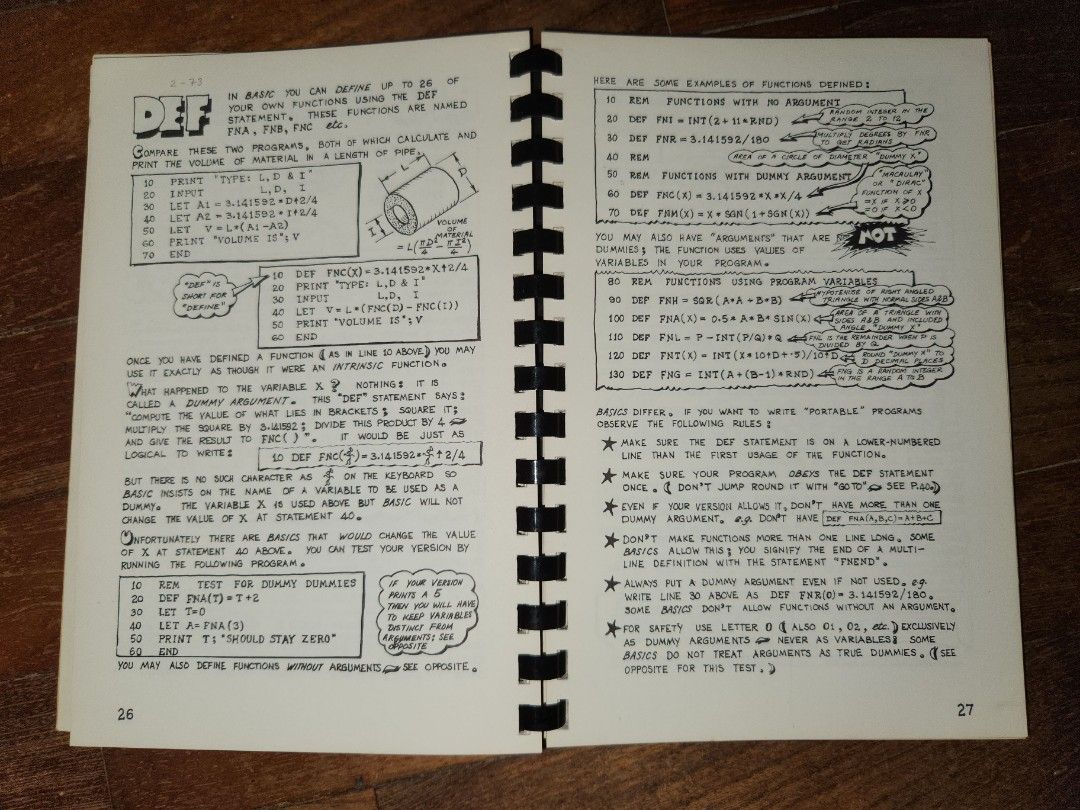 2-73
DEF
IN BASIC YOU CAN DEFINE UP TO 26 OF
YOUR OWN FUNCTIONS USING THE DEF
STATEMENT. THESE FUNCTIONS ARE NAMED
FNA, FNB, FNC etc.
COMPARE THESE TWO PROGRAMS, BOTH OF WHICH CALCULATE AND
PRINT THE VOLUME OF MATERIAL IN A LENGTH OF PIPE.
10 PRINT "TYPE: L,D & I"
20 INPUT L,D, I
30 LET A1 = 3.141592*D↑2/4
40 LET A2 = 3.141592*I↑2/4
50 LET V=L*(A1-A2)
60 PRINT "VOLUME IS"; V
70 END
L
D
I
VOLUME
OF
MATERIAL
= L(πD²/4 - πI²/4)
"DEF" IS
SHORT FOR
"DEFINE"
10 DEF FNC(X)=3.141592*X↑2/4
20 PRINT "TYPE: L,D & I"
30 INPUT L,D, I
40 LET V=L*(FNC(D)-FNC(I))
50 PRINT "VOLUME IS"; V
60 END
ONCE YOU HAVE DEFINED A FUNCTION (AS IN LINE 10 ABOVE) YOU MAY
USE IT EXACTLY AS THOUGH IT WERE AN INTRINSIC FUNCTION.
WHAT HAPPENED TO THE VARIABLE X ? NOTHING: IT IS
CALLED A DUMMY ARGUMENT. THIS "DEF" STATEMENT SAYS:
"COMPUTE THE VALUE OF WHAT LIES IN BRACKETS; SQUARE IT;
MULTIPLY THE SQUARE BY 3.141592; DIVIDE THIS PRODUCT BY 4
AND GIVE THE RESULT TO FNC( )". IT WOULD BE JUST AS
LOGICAL TO WRITE:
10 DEF FNC( )=3.141592* ↑2/4
BUT THERE IS NO SUCH CHARACTER AS ON THE KEYBOARD SO
BASIC INSISTS ON THE NAME OF A VARIABLE TO BE USED AS A
DUMMY. THE VARIABLE X IS USED ABOVE BUT BASIC WILL NOT
CHANGE THE VALUE OF X AT STATEMENT 40.
UNFORTUNATELY THERE ARE BASICS THAT WOULD CHANGE THE VALUE
OF X AT STATEMENT 40 ABOVE. YOU CAN TEST YOUR VERSION BY
RUNNING THE FOLLOWING PROGRAM.
10 REM TEST FOR DUMMY DUMMIES
20 DEF FNA(T)=T+2
30 LET T=0
40 LET A=FNA(3)
50 PRINT T; "SHOULD STAY ZERO"
60 END
IF YOUR VERSION
PRINTS A 5
THEN YOU WILL HAVE
TO KEEP VARIABLES
DISTINCT FROM
ARGUMENTS: SEE
OPPOSITE
YOU MAY ALSO DEFINE FUNCTIONS WITHOUT ARGUMENTS SEE OPPOSITE.
26
HERE ARE SOME EXAMPLES OF FUNCTIONS DEFINED:
10 REM FUNCTIONS WITH NO ARGUMENT
20 DEF FNI=INT(2+11*RND)
RANDOM INTEGER IN THE
RANGE 2 TO 12
30 DEF FNR=3.141592/180
MULTIPLY DEGREES BY FNR
TO GET RADIANS
40 REM
AREA OF A CIRCLE OF DIAMETER "DUMMY X"
50 REM FUNCTIONS WITH DUMMY ARGUMENT
60 DEF FNC(X)=3.141592*X*X/4
70 DEF FNM(X)=X*SGN(1+SGN(X))
"MACAULAY
OR "DIRAC"
FUNCTION OF X
=X IF X≥0
=0 IF X<0
YOU MAY ALSO HAVE "ARGUMENTS" THAT ARE NOT
DUMMIES; THE FUNCTION USES VALUES OF
VARIABLES IN YOUR PROGRAM.
80 REM FUNCTIONS USING PROGRAM VARIABLES
90 DEF FNH=SQR(A*A+B*B)
HYPOTENUSE OF RIGHT ANGLED
TRIANGLE WITH NORMAL SIDES A&B
100 DEF FNA(X)=0.5*A*B*SIN(X)
AREA OF A TRIANGLE WITH
SIDES A&B AND INCLUDED
ANGLE "DUMMY X"
110 DEF FNL=P-INT(P/Q)*Q
FNL IS THE REMAINDER WHEN P IS
DIVIDED BY Q
120 DEF FNT(X)=INT(X*10↑D+.5)/10↑D
ROUND "DUMMY X" TO
D DECIMAL PLACES
130 DEF FNG=INT(A+(B-1)*RND)
FNG IS A RANDOM INTEGER
IN THE RANGE A TO B
BASICS DIFFER. IF YOU WANT TO WRITE "PORTABLE" PROGRAMS
OBSERVE THE FOLLOWING RULES:
★ MAKE SURE THE DEF STATEMENT IS ON A LOWER-NUMBERED
LINE THAN THE FIRST USAGE OF THE FUNCTION.
★ MAKE SURE YOUR PROGRAM OBEYS THE DEF STATEMENT
ONCE. (DON'T JUMP ROUND IT WITH "GOTO" SEE P.40.)
★ EVEN IF YOUR VERSION ALLOWS IT, DON'T HAVE MORE THAN ONE
DUMMY ARGUMENT. e.g. DON'T HAVE DEF FNA(A,B,C)=A+B+C
★ DON'T MAKE FUNCTIONS MORE THAN ONE LINE LONG. SOME
BASICS ALLOW THIS; YOU SIGNIFY THE END OF A MULTI-
LINE DEFINITION WITH THE STATEMENT "FNEND".
★ ALWAYS PUT A DUMMY ARGUMENT EVEN IF NOT USED. e.g.
WRITE LINE 30 ABOVE AS DEF FNR(O)=3.141592/180.
SOME BASICS DON'T ALLOW FUNCTIONS WITHOUT AN ARGUMENT.
★ FOR SAFETY USE LETTER O (ALSO O1, O2, etc.) EXCLUSIVELY
AS DUMMY ARGUMENTS NEVER AS VARIABLES; SOME
BASICS DO NOT TREAT ARGUMENTS AS TRUE DUMMIES. (SEE
OPPOSITE FOR THIS TEST.)
27